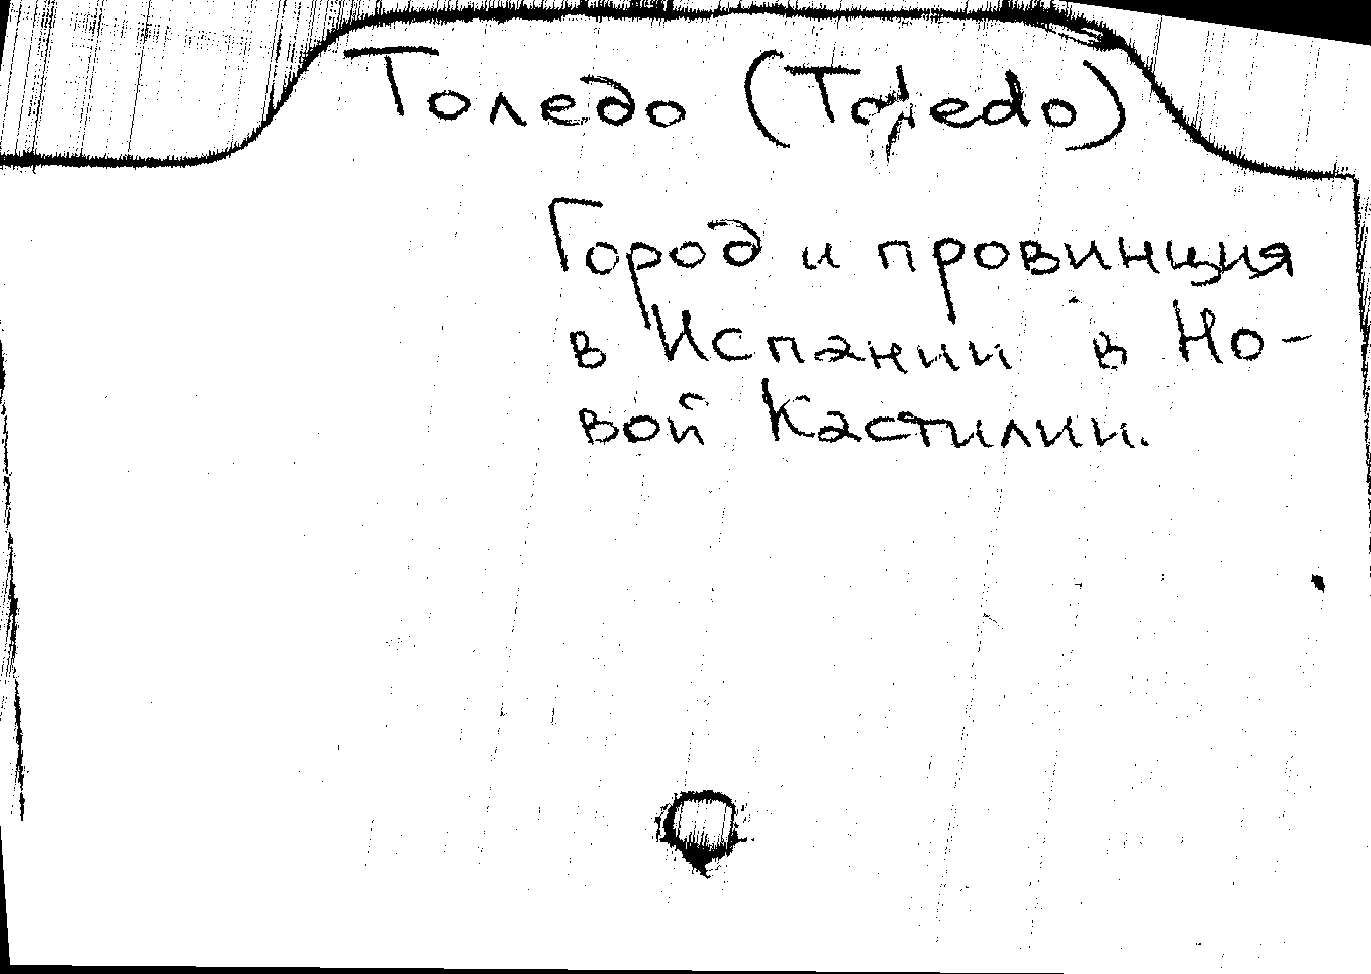 Толедо (Toledo)
Город и провинция
в Испании в Но-
вой Кастилии.